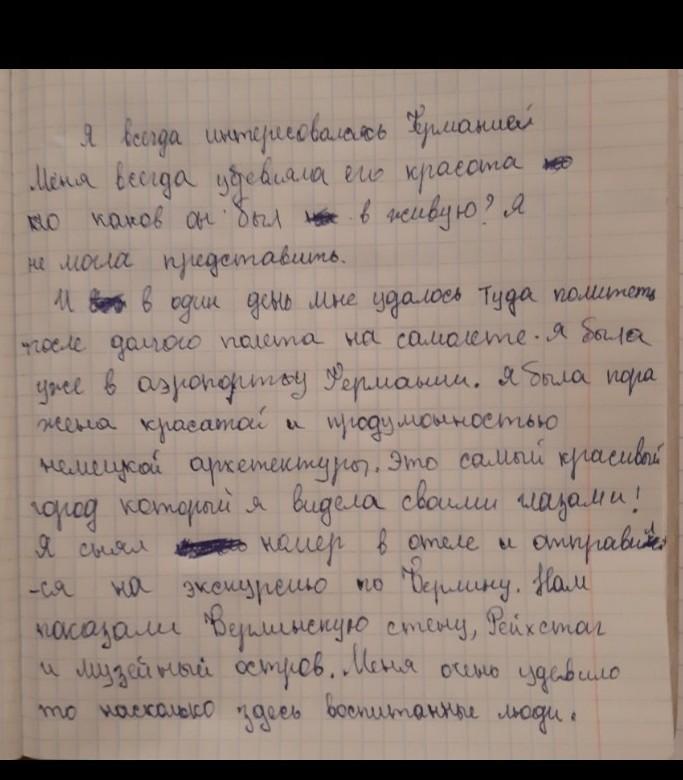 Я всегда интересовалась Германией
Меня всегда удевляла его красата
но каков он был в живую? Я
не могла представить.
И в один день мне удалось туда полететь
после долгого полета на самолете. я была
уже в аэропорту Германии. Я была пора
жена красатой и продумонностью
немецкой архетектуры. Это самый красивый
город который я видела своими глазами!
Я снял номер в отеле и отправи
-ся на экскурсию по Берлину. Нам
показали Берлинскую стену, Рейхстаг
и музейный остров. Меня очень удевило
то насколько здесь воспитанные люди.